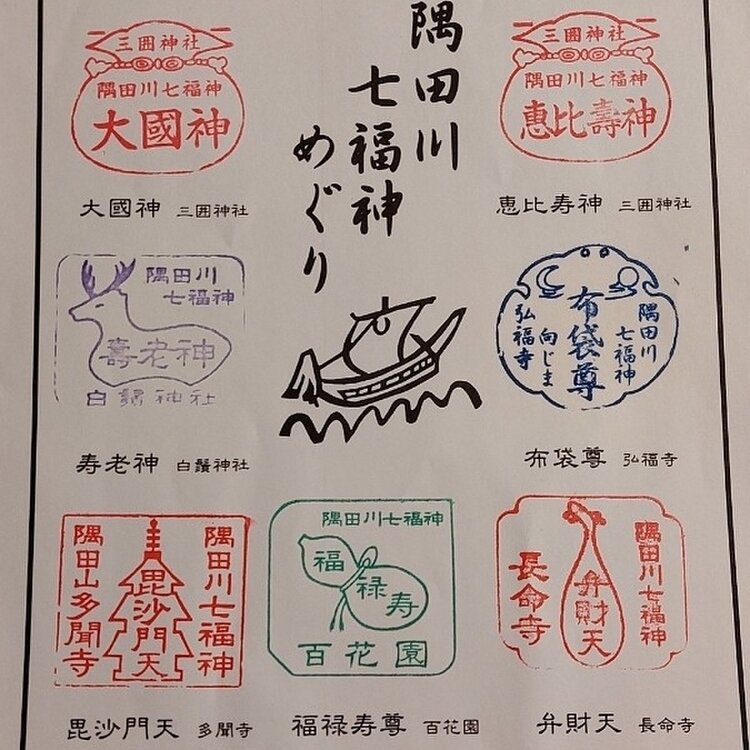 隅田川
七福神
めぐり
三囲神社
隅田川七福神
大國神
大國神 三囲神社
三囲神社
隅田川七福神
恵比壽神
恵比寿神 三囲神社
隅田川
七福神
壽老神
白鬚神社
寿老神 白鬚神社
隅田川
七福神
布袋尊
向じま
弘福寺
布袋尊 弘福寺
隅田川七福神
毘沙門天
隅田山多聞寺
毘沙門天 多聞寺
隅田川七福神
福
禄
寿
百花園
福禄寿尊 百花園
隅田川七福神
弁財天
長命寺
弁財天 長命寺